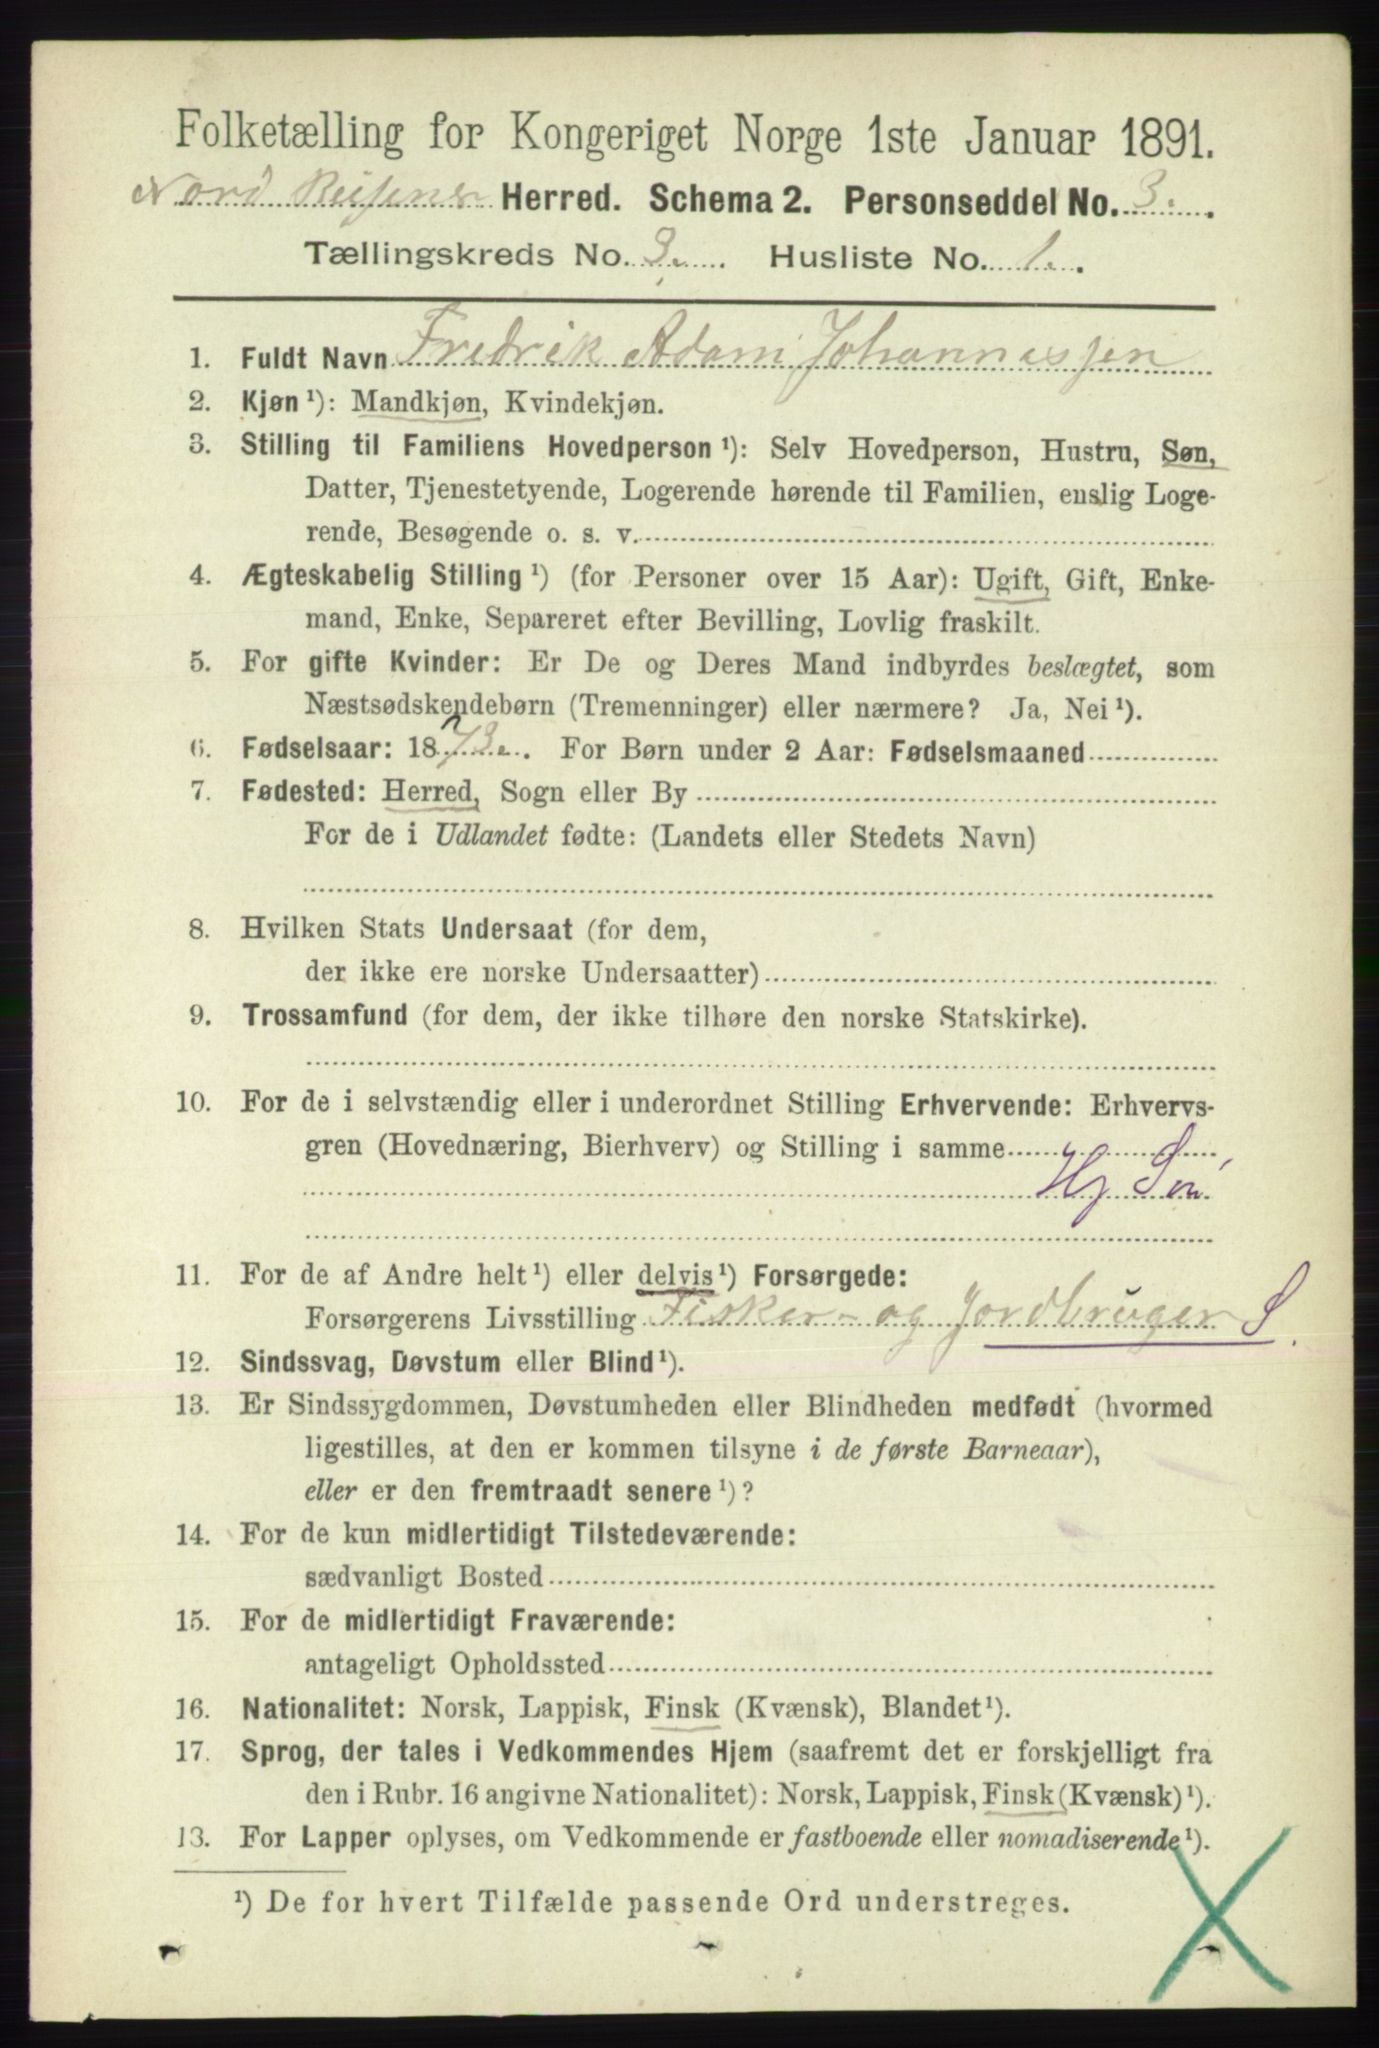 Folketælling for Kongeriget Norge 1ste Januar 1891.
Nord Reisens Herred. Schema 2. Personseddel No. 3.
Tællingskreds No. 3. Husliste No. 1.
1. Fuldt Navn Fredrik Adam Johannessen
2. Kjøn ¹): Mandkjøn, Kvindekjøn.
3. Stilling til Familiens Hovedperson ¹): Selv Hovedperson, Hustru, Søn,
Datter, Tjenestetyende, Logerende hørende til Familien, enslig Loge-
rende, Besøgende o. s. v.
4. Ægteskabelig Stilling ¹) (for Personer over 15 Aar): Ugift, Gift, Enke-
mand, Enke, Separeret efter Bevilling, Lovlig fraskilt.
5. For gifte Kvinder: Er De og Deres Mand indbyrdes beslægtet, som
Næstsødskendebørn (Tremenninger) eller nærmere? Ja, Nei ¹).
6. Fødselsaar: 1873. For Børn under 2 Aar: Fødselsmaaned
7. Fødested: Herred, Sogn eller By
For de i Udlandet fødte: (Landets eller Stedets Navn)
8. Hvilken Stats Undersaat (for dem,
der ikke ere norske Undersaatter)
9. Trossamfund (for dem, der ikke tilhøre den norske Statskirke).
10. For de i selvstændig eller i underordnet Stilling Erhvervende: Erhvervs-
gren (Hovednæring, Bierhverv) og Stilling i samme
Hj Søn
11. For de af Andre helt ¹) eller delvis ¹) Forsørgede:
Forsørgerens Livsstilling Fisker- og Jordbruger S.
12. Sindssvag, Døvstum eller Blind ¹).
13. Er Sindssygdommen, Døvstumheden eller Blindheden medfødt (hvormed
ligestilles, at den er kommen tilsyne i de første Barneaar),
eller er den fremtraadt senere ¹)?
14. For de kun midlertidigt Tilstedeværende:
sædvanligt Bosted
15. For de midlertidigt Fraværende:
antageligt Opholdssted
16. Nationalitet: Norsk, Lappisk, Finsk (Kvænsk), Blandet ¹).
17. Sprog, der tales i Vedkommendes Hjem (saafremt det er forskjelligt fra
den i Rubr. 16 angivne Nationalitet): Norsk, Lappisk, Finsk (Kvænsk) ¹).
13. For Lapper oplyses, om Vedkommende er fastboende eller nomadiserende ¹).
¹) De for hvert Tilfælde passende Ord understreges.